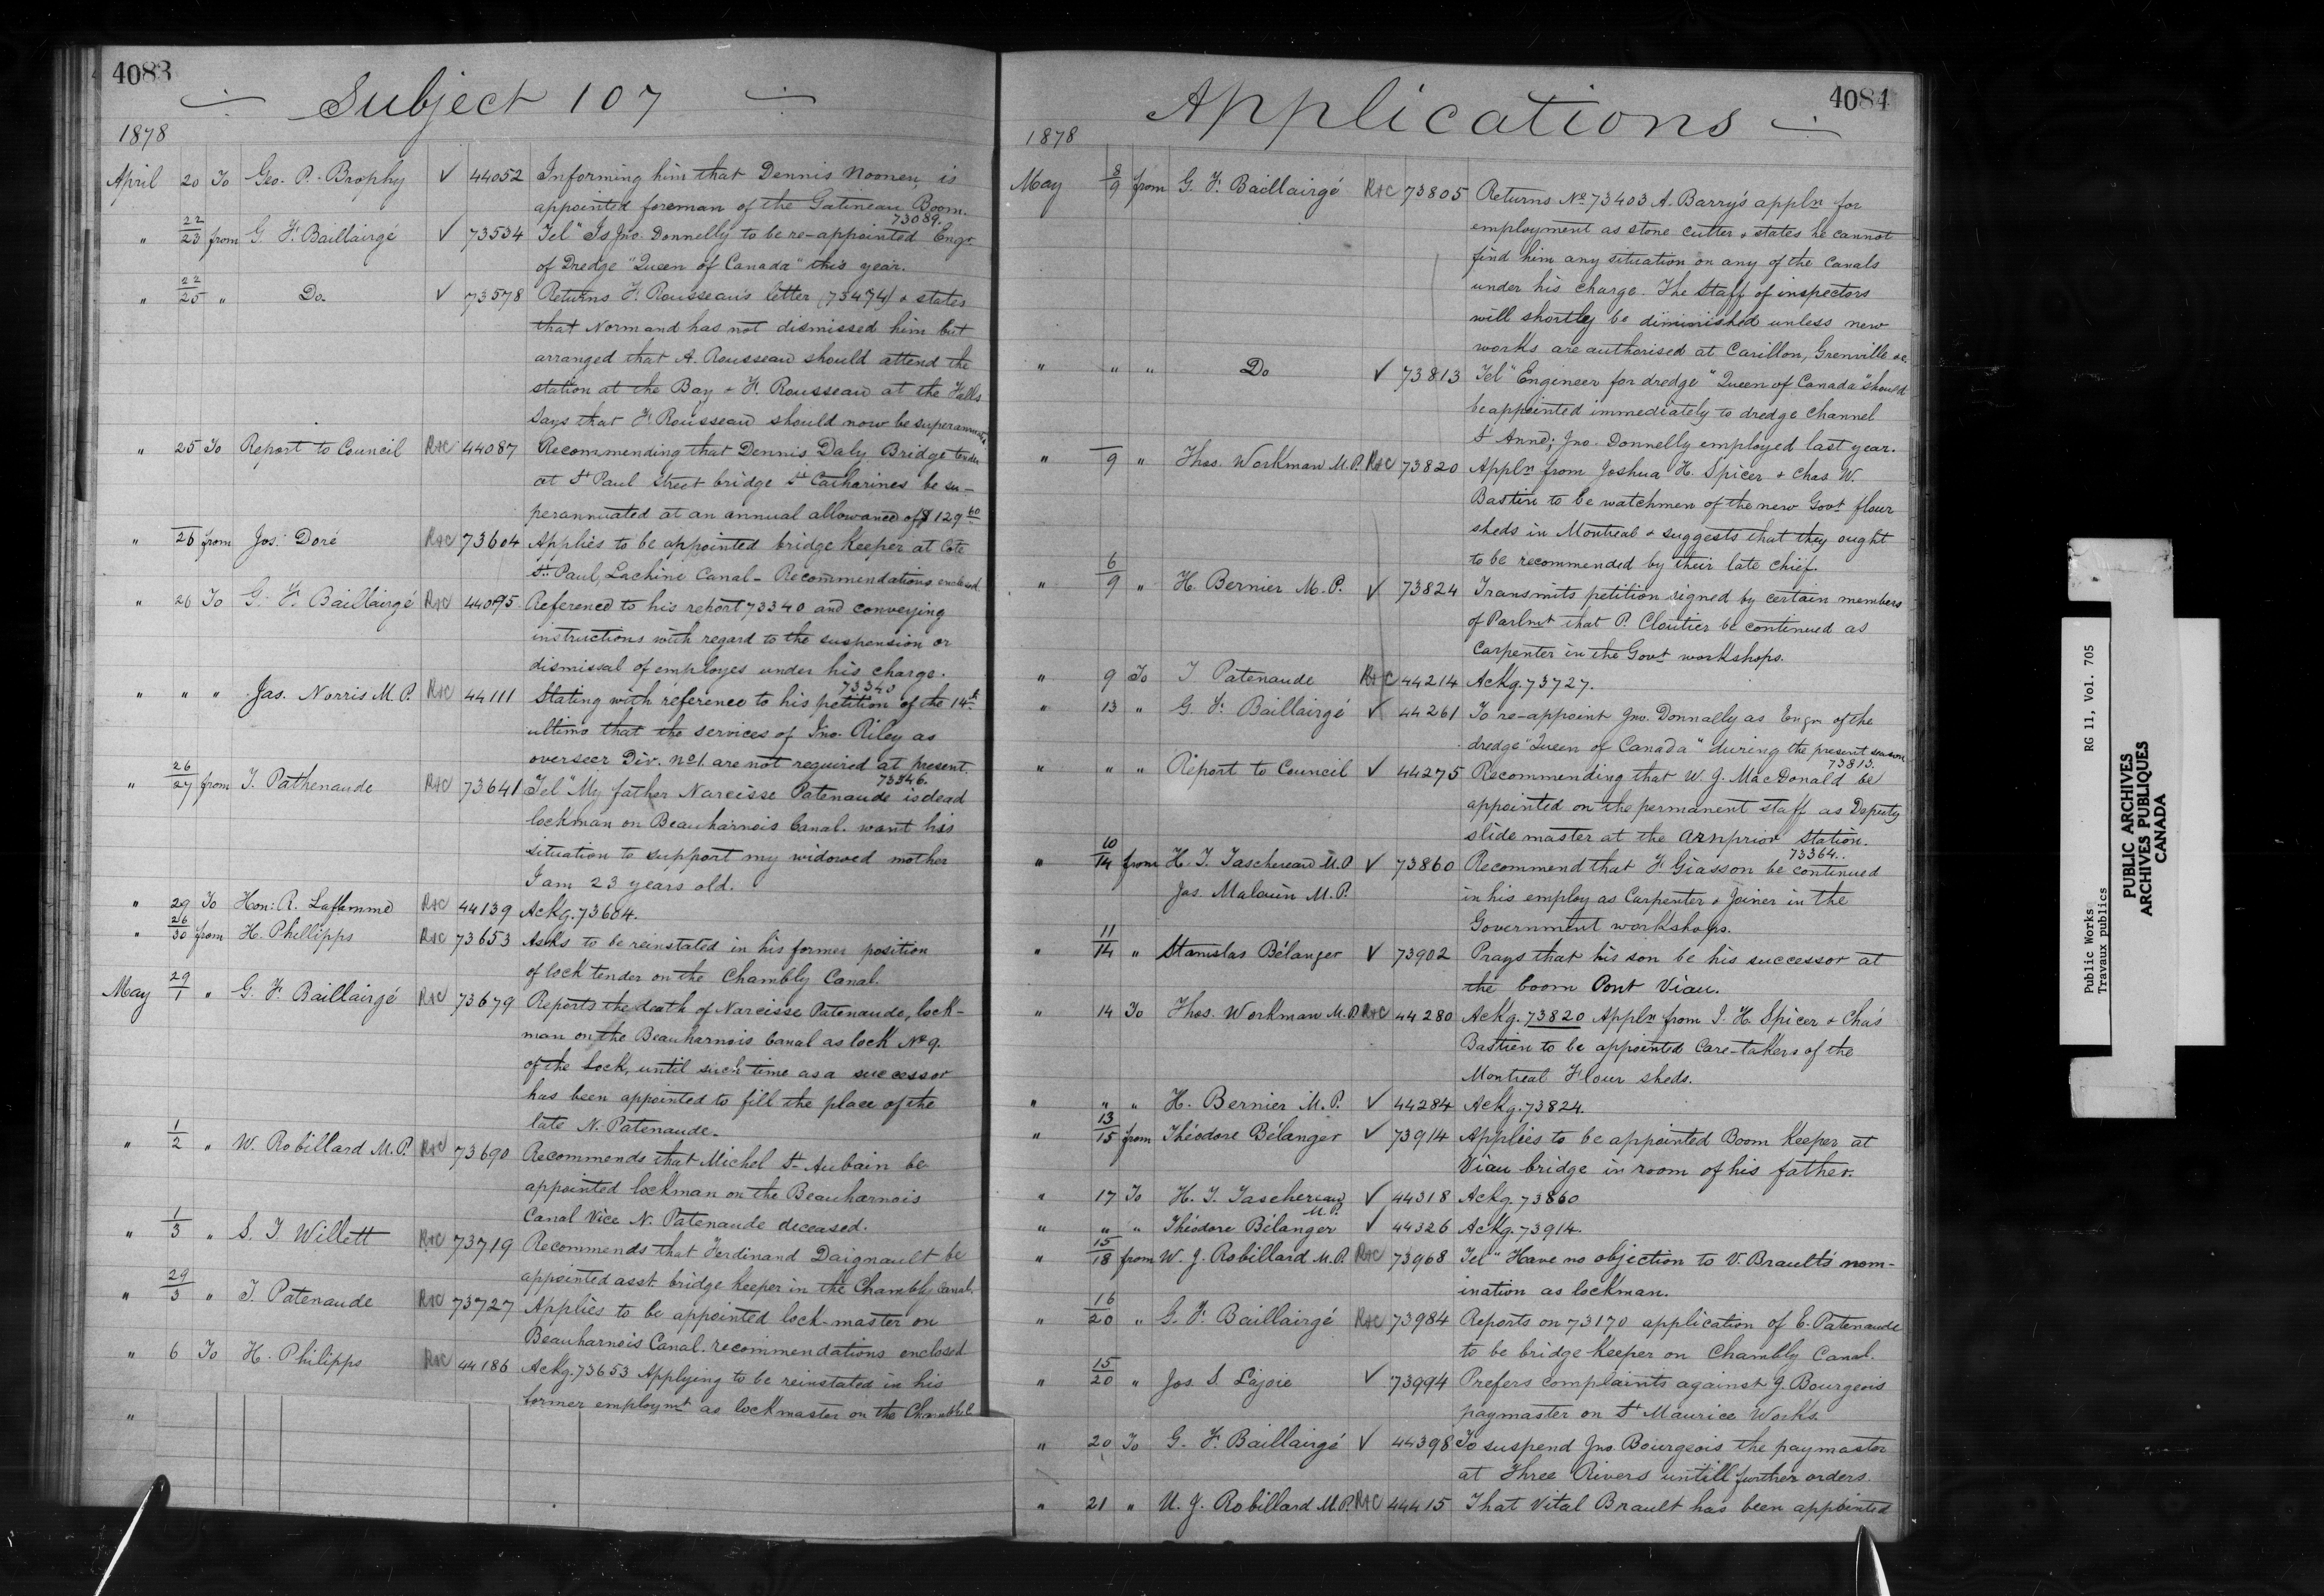 4083
Subject 107
1878
April 20 To Geo. P. Brophy ✓ 44052 Informing him that Dennis Noonen is
appointed foreman of the Gatineau Boom.
73089.
" 22/23 from G. F. Baillairgé ✓ 73534 Tel " Is Jno. Donnelly to be re-appointed Engr
of Dredge "Queen of Canada" this year.
" 22/25 " Do. ✓ 73578 Returns F. Rousseau's letter (73474) & states
that Normand has not dismissed him but
arranged that A. Rousseau should attend the
station at the Bay & F. Rousseau at the Falls
Says that F. Rousseau should now be superannuated
" 25 To Report to Council R&C 44087 Recommending that Dennis Daly Bridge tender
at St Paul Street bridge St Catharines be su-
perannuated at an annual allowance of $129 60
" 26 from Jos. Doré R&C 73604 Applies to be appointed bridge keeper at Cote
St. Paul, Lachine Canal - Recommendations enclosed
" 26 To G. F. Baillairgé R&C 44095 Reference to his report 73340 and conveying
instructions with regard to the suspension or
dismissal of employes under his charge.
73340
" " " Jas. Norris M.P. R&C 44111 Stating with reference to his petition of the 14th
ultimo that the services of Jno. Riley as
overseer Div. No 1. are not required at present.
73346.
" 26/27 from T. Pathenaude R&C 73641 Tel "My father Narcisse Patenaude is dead
lockman on Beauharnois Canal. want his
situation to support my widowed mother
I am 23 years old.
" 29 To Hon: R. Laflamme R&C 44139 Ackg. 73604.
" 26/30 from H. Phillipps R&C 73653 Asks to be reinstated in his former position
of lock tender on the Chambly Canal.
May 29/1 " G. F. Baillairgé R&C 73679 Reports the death of Narcisse Patenaude, lock-
man on the Beauharnois Canal as lock No 9.
of the Lock, until such time as a successor
has been appointed to fill the place of the
late N. Patenaude.
" 1/2 " W. Robillard M.P. R&C 73690 Recommends that Michel St Aubain be
appointed lockman on the Beauharnois
Canal Vice N. Patenaude deceased.
" 1/3 " S. T. Willett R&C 73719 Recommends that Ferdinand Daignault be
appointed asst. bridge keeper in the Chambly Canal.
" 29/3 " T. Patenaude R&C 73727 Applies to be appointed lock-master on
Beauharnois Canal. recommendations enclosed
" 6 To H. Philipps R&C 44186 Ackg. 73653 Applying to be reinstated in his
former employmt as lockmaster on the
"
4084
Applications
1878
May 8/9 from G. F. Baillairgé R&C 73805 Returns No 73403 A. Barry's appln for
employment as stone cutter & states he cannot
find him any situation on any of the Canals
under his charge. The Staff of inspectors
will shortly be diminished unless new
works are authorised at Carillon, Grenville &c
" " " Do ✓ 73813 Tel "Engineer for dredge "Queen of Canada" should
be appointed immediately to dredge channel
St Anne; Jno. Donnelly employed last year.
" 9 " Thos. Workman M.P. R&C 73820 Applr from Joshua H. Spicer & Chas W.
Bastin to be watchmen of the new Govt flour
sheds in Montreal & suggests that they ought
to be recommended by their late chief.
" 6/9 " H. Bernier M.P. ✓ 73824 Transmits petition signed by certain members
of Parlmt that P. Cloutier be continued as
Carpenter in the Govt workshops.
" 9 To T. Patenaude R&C 44214 Ackg. 73727.
" 13 " G. F. Baillairgé ✓ 44261 To re-appoint Jno. Donnally as Engr of the
dredge "Queen of Canada" during the present season
73813.
" " " Report to Council ✓ 44275 Recommending that W. J. MacDonald be
appointed on the permanent staff as Deputy
slide master at the Arnprior Station.
73364.
" 10/14 from H. T. Taschereau M.P. ✓ 73860 Recommend that F. Giasson be continued
Jas. Malouin M.P. in his employ as Carpenter & Joiner in the
Government workshops.
" 11/14 " Stanislas Bélanger ✓ 73902 Prays that his son be his successor at
the boom Pont Viau.
" 14 To Thos. Workman M.P. R&C 44280 Ackg. 73820 Applr from J. H. Spicer & Chas
Bastien to be appointed Care-takers of the
Montreal Flour sheds.
" " " H. Bernier M.P. ✓ 44284 Ackg. 73824.
" 13/15 from Théodore Bélanger ✓ 73914 Applies to be appointed Boom Keeper at
Viau bridge in room of his father.
" 17 To H. T. Taschereau M.P. ✓ 44318 Ackg. 73860
" " " Théodore Bélanger ✓ 44326 Ackg. 73914.
" 15/18 from W. J. Robillard M.P. R&C 73968 Tel "Have no objection to V. Brault's nom-
ination as lockman.
" 16/20 " G. F. Baillairgé R&C 73984 Reports on 73170 application of E. Patenaude
to be bridge keeper on Chambly Canal.
" 15/20 " Jos. S. Lajoie ✓ 73994 Prefers complaints against J. Bourgeois
paymaster on St Maurice Works.
" 20 To G. F. Baillairgé ✓ 44398 To suspend Jno. Bourgeois the paymaster
at Three Rivers untill further orders.
" 21 " U. J. Robillard M.P. R&C 44415 That Vital Brault has been appointed
Public Works RG 11, Vol. 705
Travaux publics
PUBLIC ARCHIVES
ARCHIVES PUBLIQUES
CANADA